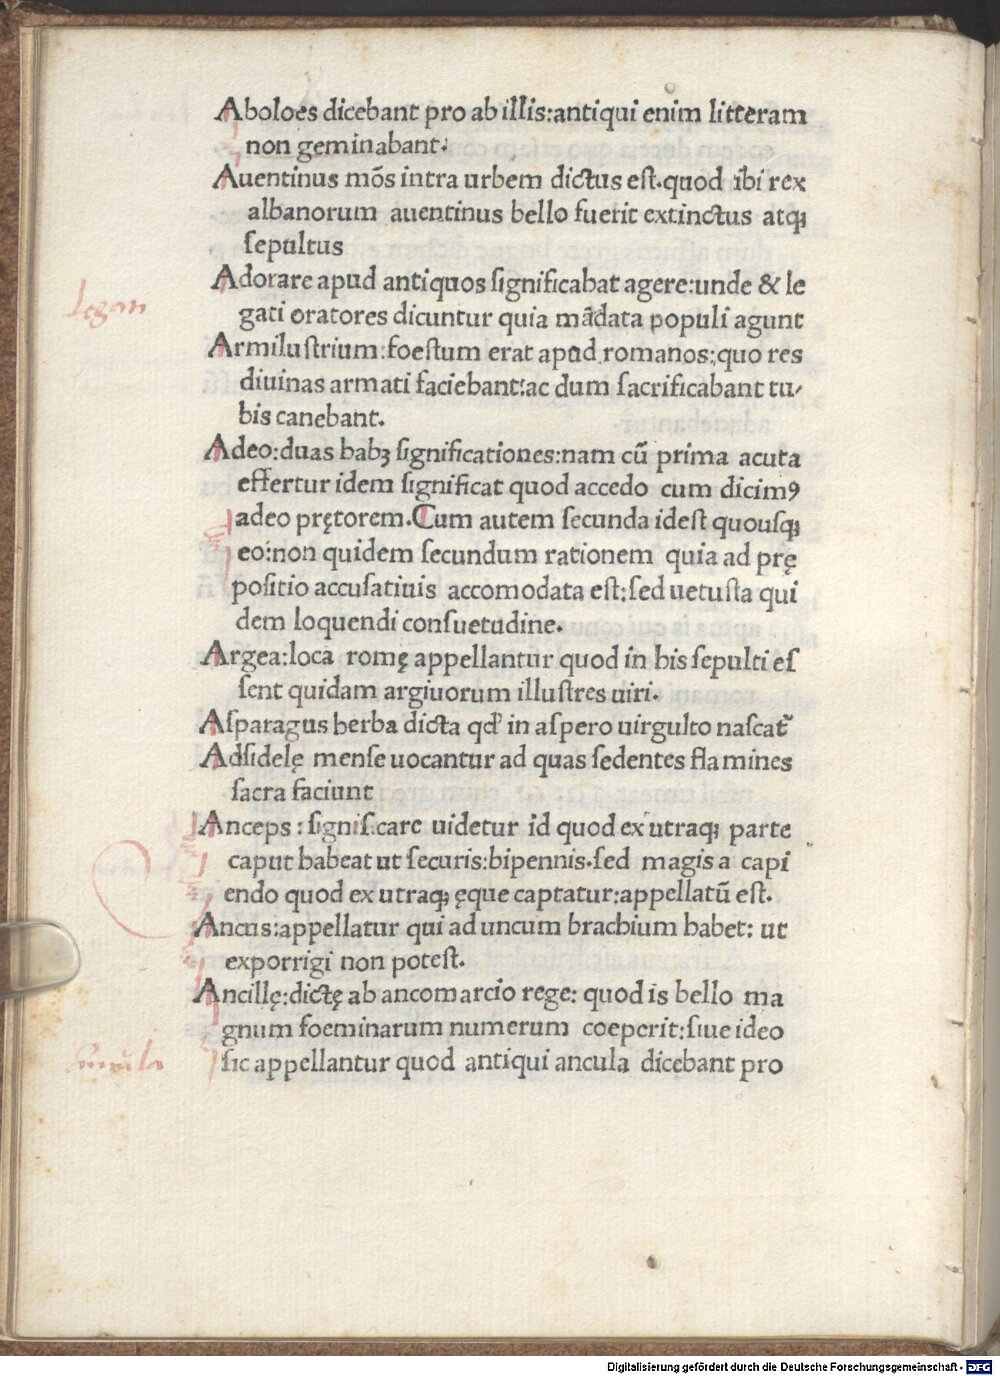 Aboloes dicebant pro ab illis:antiqui enim litteram
non geminabant.
Auentinus mōs intra urbem dictus est.quod ibi rex
albanorum auentinus bello fuerit extinctus atqꝫ
sepultus
Adorare apud antiquos significabat agere:unde & le
gati oratores dicuntur quia mādata populi agunt
Armilustrium:foestum erat apud romanos:quo res
diuinas armati faciebant:ac dum sacrificabant tu/
bis canebant.
Adeo:duas habꝫ significationes:nam cū prima acuta
effertur idem significat quod accedo cum dicimꝰ
adeo prętorem.Cum autem secunda idest quousqꝫ
eo:non quidem secundum rationem quia ad prę
positio accusatiuis accomodata est:sed uetusta qui
dem loquendi consuetudine.
Argea:loca romę appellantur quod in his sepulti es
sent quidam argiuorum illustres uiri.
Asparagus herba dicta qd' in aspero uirgulto nascat᷑
Adsidelę mense uocantur ad quas sedentes flamines
sacra faciunt
Anceps:significare uidetur id quod ex utraqꝫ parte
caput habeat ut securis:bipennis.sed magis a capi
endo quod ex utraqꝫ ęque captatur:appellatū est.
Ancus:appellatur qui ad uncum brachium habet: ut
exporrigi non potest.
Ancillę:dictę ab ancomarcio rege: quod is bello ma
gnum foeminarum numerum coeperit:siue ideo
sic appellantur quod antiqui ancula dicebant pro
Digitalisierung gefördert durch die Deutsche Forschungsgemeinschaft - DFG